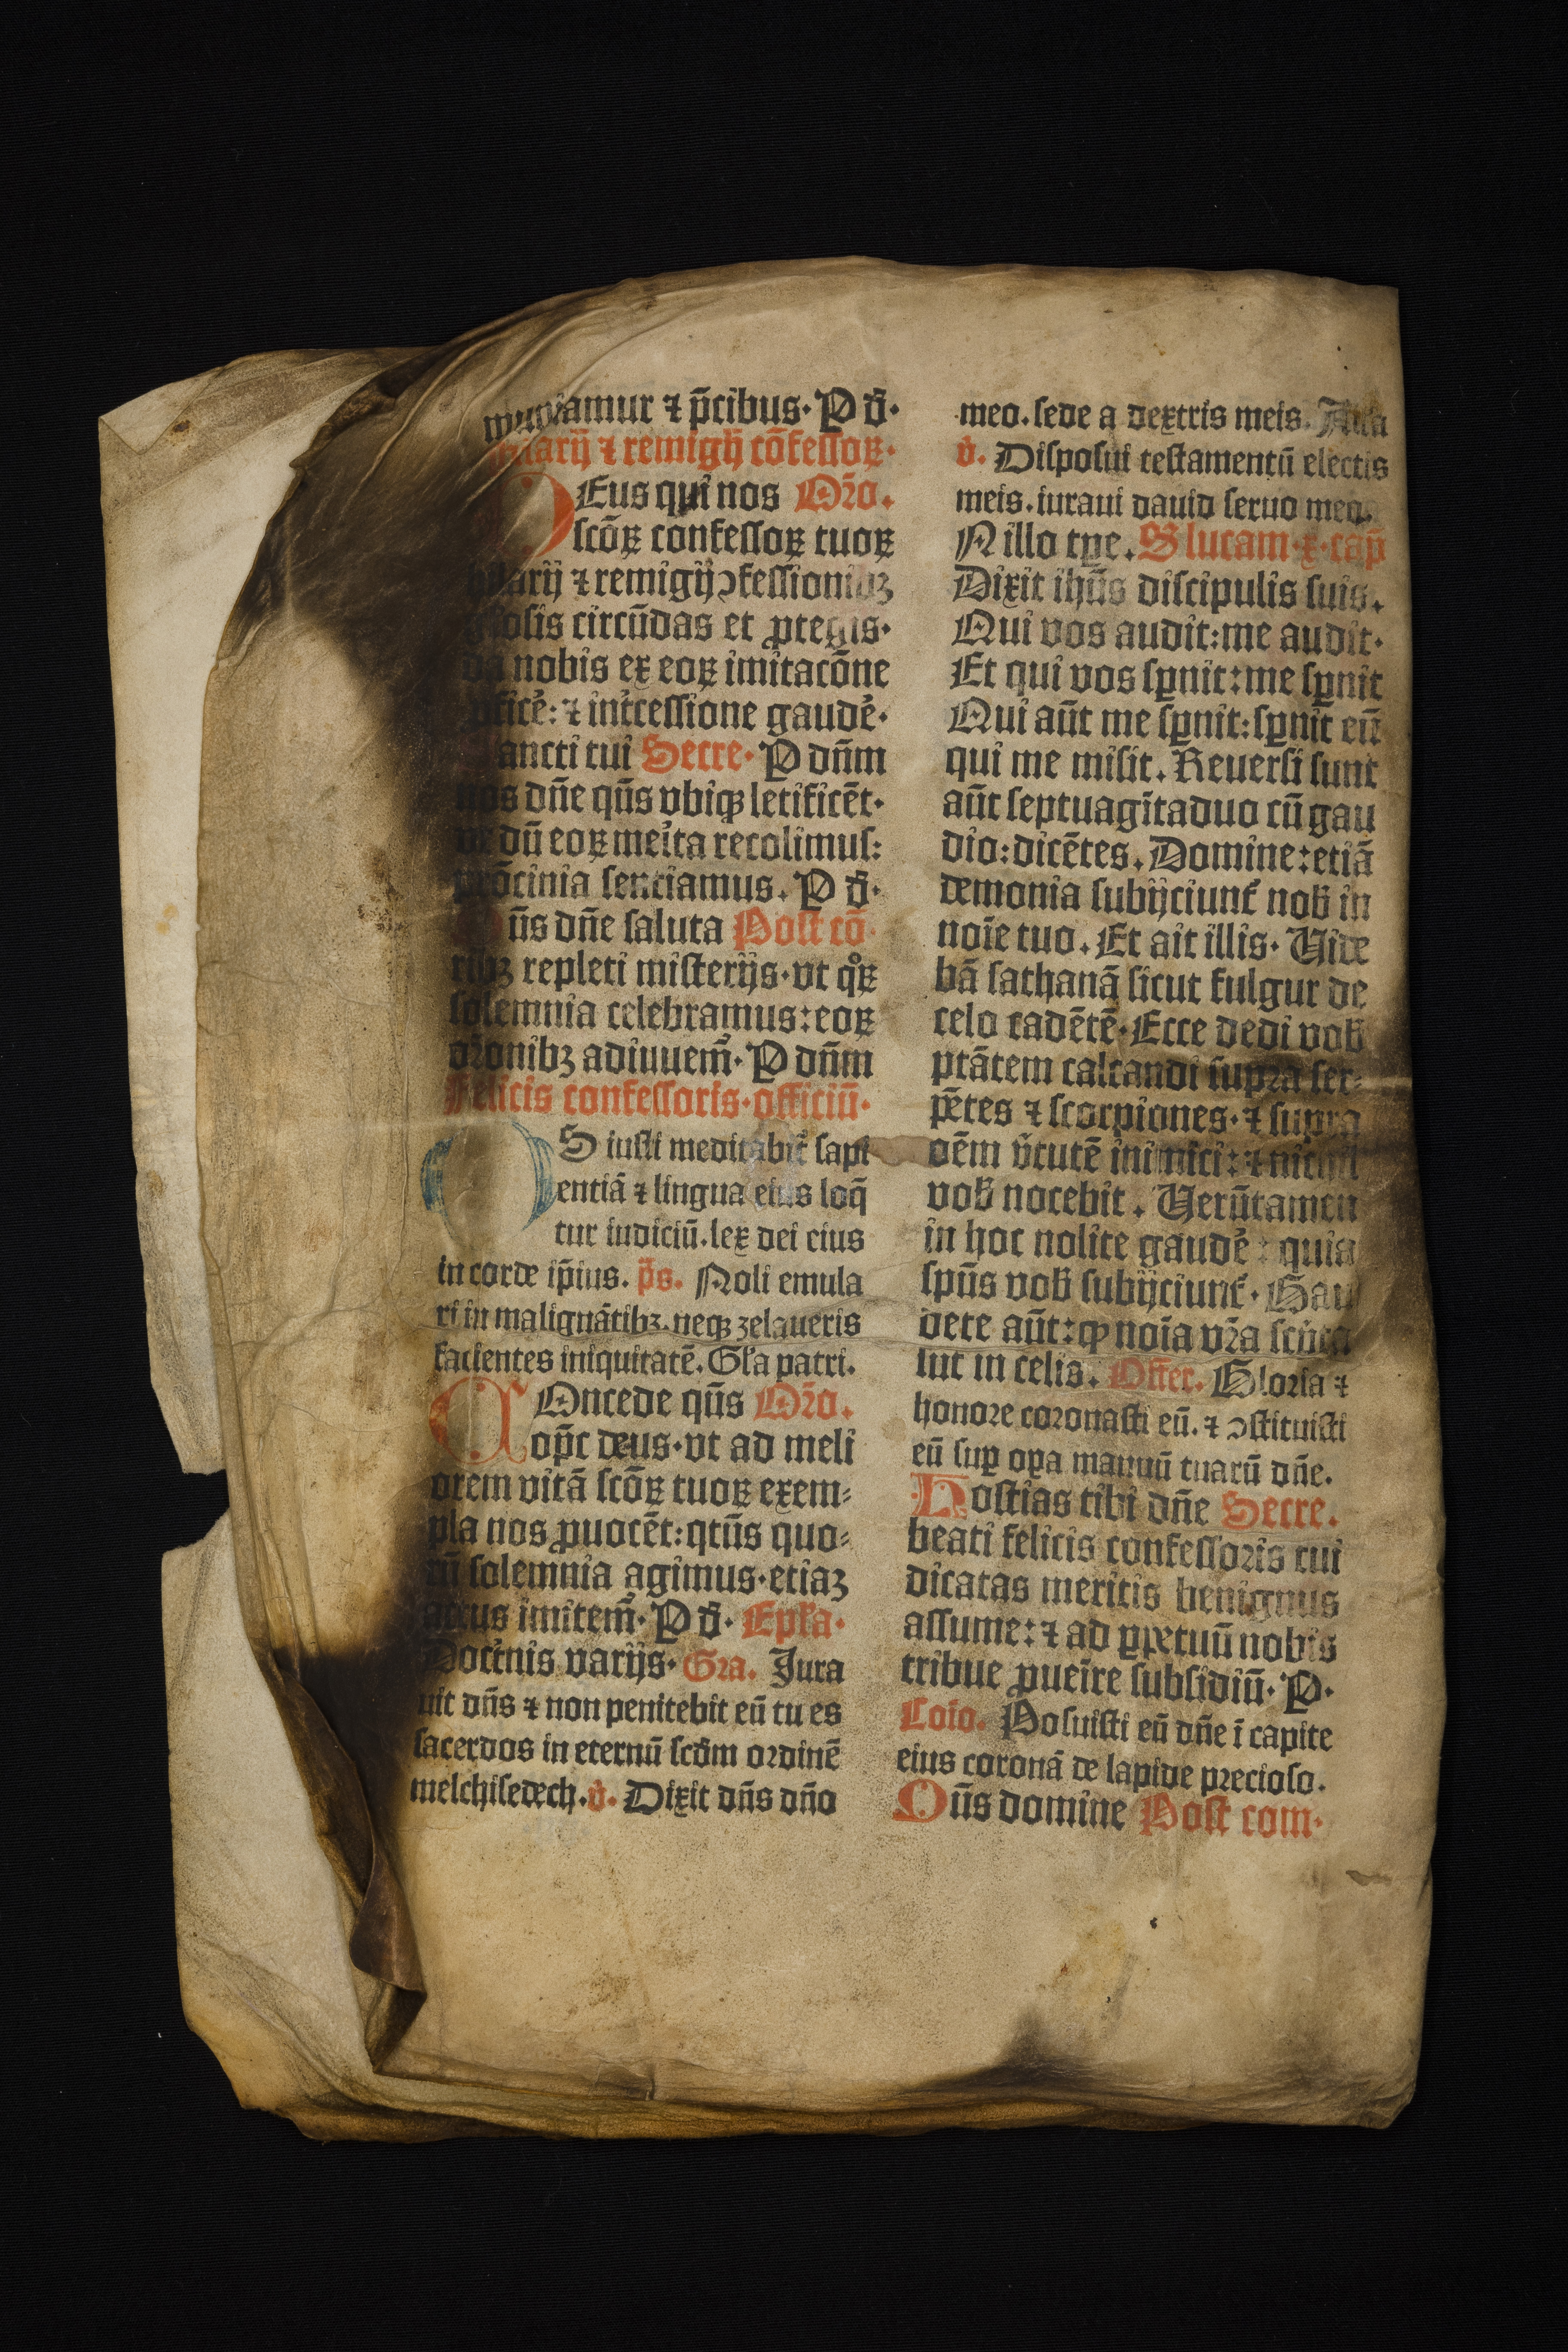 muniamur ⁊ p̄cibus· P d̄·
hilarij ⁊ remigij cōfessoꝝ·
DEus qui nos Oro.
scōꝝ confessoꝝ tuoꝝ
hilarij ⁊ remigij ꝯfessionibꝫ
gl̄osis circūdas et ꝓtegis·
da nobis ex eoꝝ imitacōne
ꝓficė: ⁊ int̉cessione gaudė·
Sancti tui Secre· P dn̄m
nos dn̄e qūs vbiqꝫ letificēt·
vt dū eoꝝ meỉta recolimus:
pr̄ocinia senciamus. P d̄·
Qūs dn̄e saluta Post cō·
ribꝫ repleti misterijs· vt qͦꝝ
solemnia celebramus: eoꝝ
or̄onibꝫ adiuuem̉· P dn̄m
Felicis confessoris· officiū·
OS iusti meditabit̉ sapi
entiā ⁊ lingua eius loq̄
tur iudiciū. lex dei eius
in corde ip̄ius. p̄s. Noli emula
ri in malignātibꝫ. neqꝫ zelaueris
facientes iniquitatē. Gl̄a patri.
COncede qūs Oro.
op̄c deus· vt ad meli
orem vitā scōꝝ tuoꝝ exem⸗
pla nos ꝓuocēt: qtūs quo⸗
rū solemnia agimus· etiaꝫ
actus imitem̉· P d̄· Epl̄a·
Doct̉nis varijs· Gra. Jura
uit dn̄s ⁊ non penitebit eū tu es
sacerdos in eternū scd̄m ordinē
melchisedech. v̉. Dixit dn̄s dn̄o
meo. sede a dextris meis. Alla
v̉. Disposui testamentū electis
meis. iuraui dauid seruo meo.
N illo tp̄e. S lucam· x· cap̄
Dixit ihūs discipulis suis.
Qui vos audit: me audit·
Et qui vos sꝑnit: me sꝑnit
Qui aūt me sꝑnit: sꝑnit eū
qui me misit. Reuersi sunt
aūt septuagītaduo cū gau
dio: dicētes. Domine: etiā
demonia subijciunt̉ nob̄ in
noīe tuo. Et ait illis· Uide
bā sathanā sicut fulgur de
celo cadētē· Ecce dedi vob̄
ptātem calcandi supra ser⸗
pētes ⁊ scorpiones· ⁊ supra
oēm v̉tutē inimici: ⁊ nichil
vob̄ nocebit. Uerūtamen
in hoc nolite gaudė: quia
spūs vob̄ subijciunt̉· Gau
dete aūt: qꝙ noīa vr̄a scripta
sut in celis. Offer. Gloria ⁊
honore coronasti eū. ⁊ ꝯstituisti
eū suꝑ oꝑa manuū tuarū dn̄e.
Hostias tibi dn̄e Secre.
beati felicis confessoris tui
dicatas meritis benignus
assume: ⁊ ad ꝑpetuū nobis
tribue ꝓueīre subsidiū· P·
Coīo. Posuisti eū dn̄e ī capite
eius coronā de lapide precioso.
Qūs domine Post com·